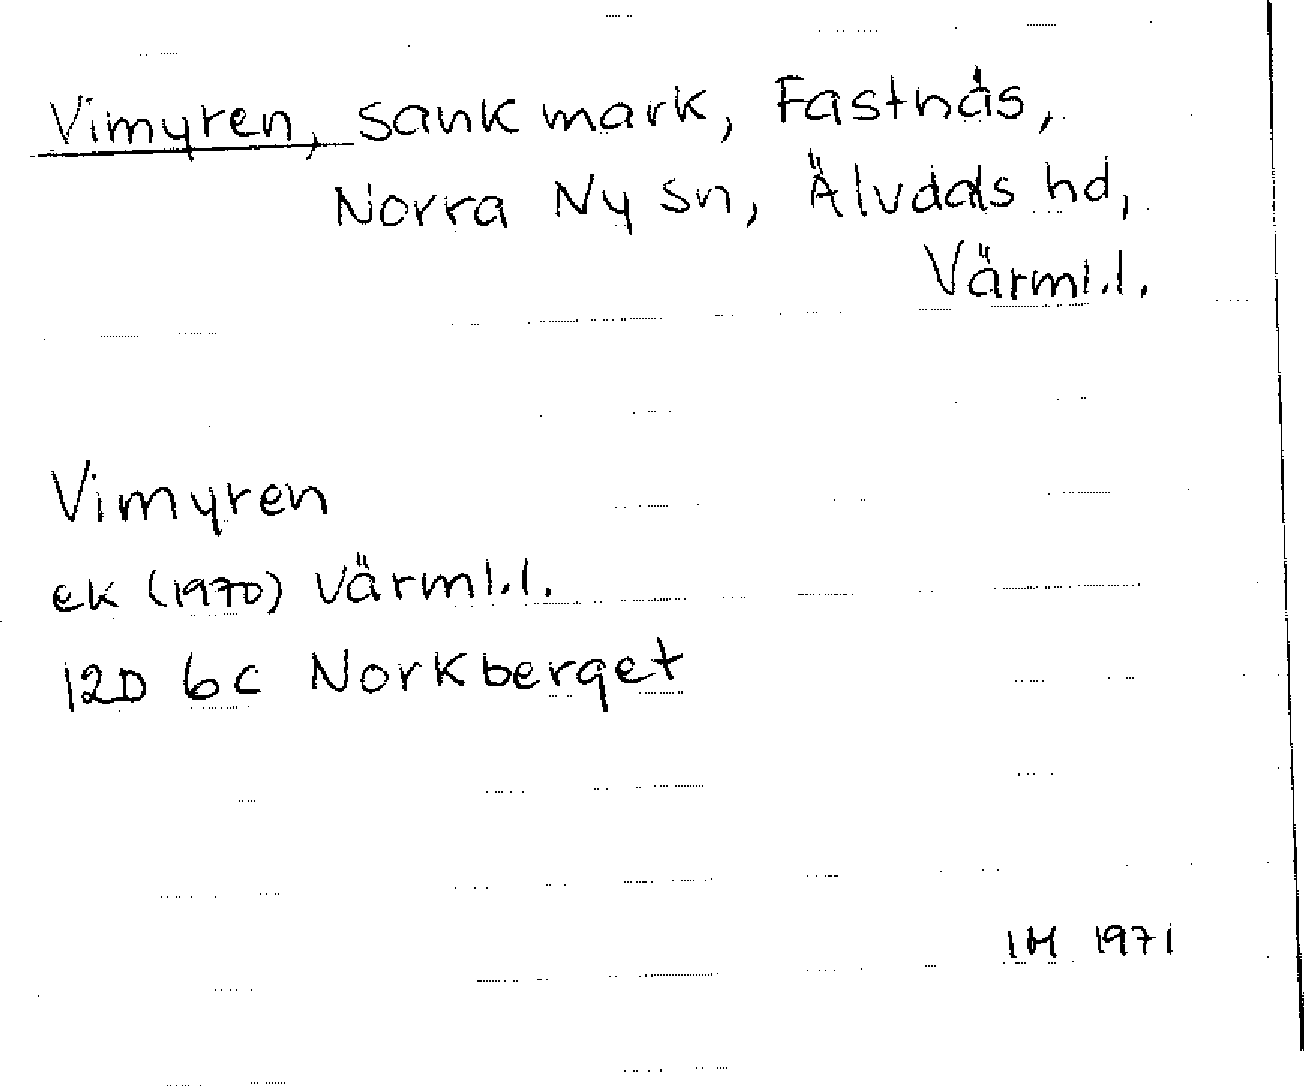 Vimyren, sank mark, Fastnäs,
Norra Ny sn, Älvdals hd,
Värml.l.
Vimyren
ek (1970) Värml.l.
12D 6c Norkberget
IH 1971